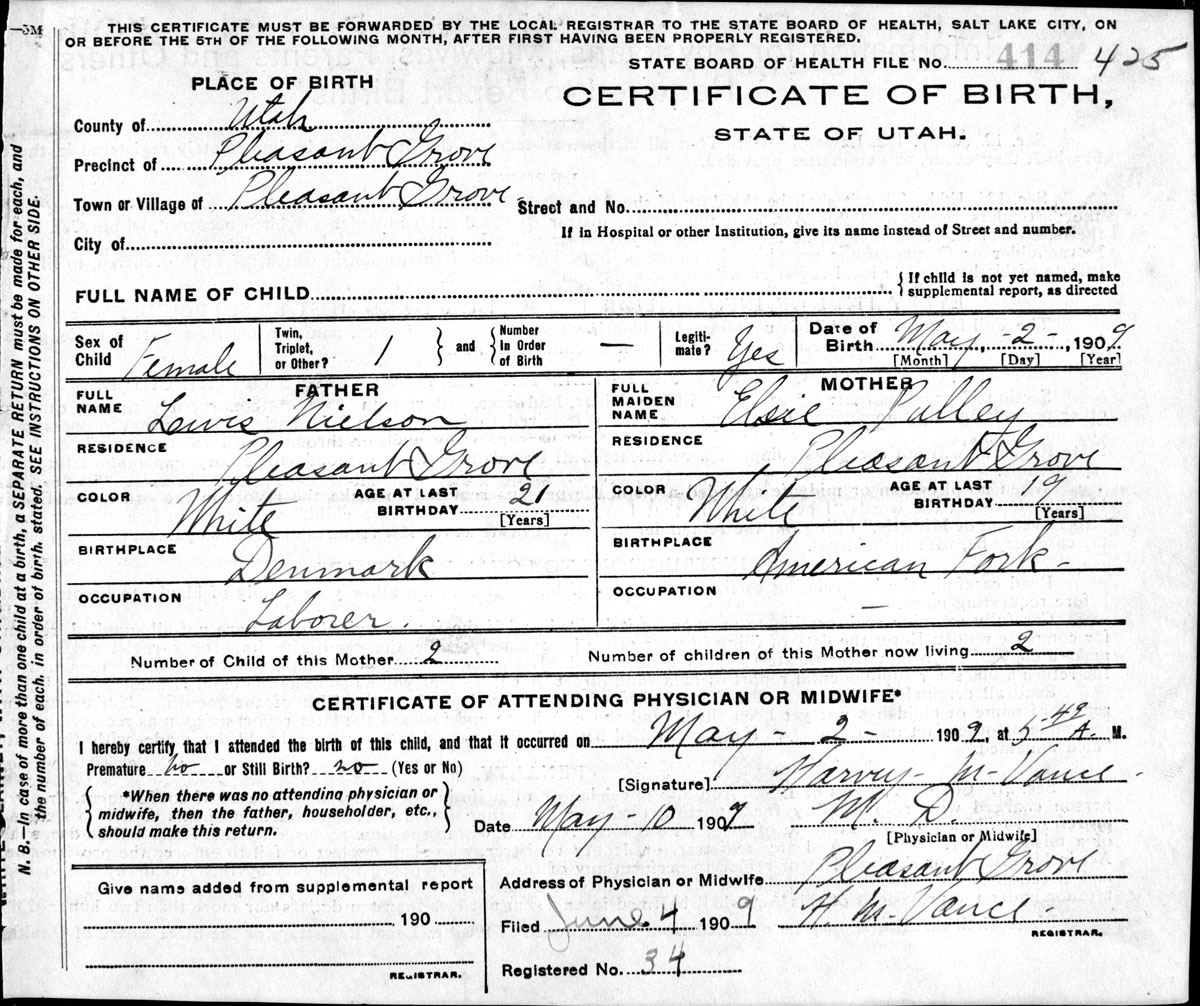 —5M
THIS CERTIFICATE MUST BE FORWARDED BY THE LOCAL REGISTRAR TO THE STATE BOARD OF HEALTH, SALT LAKE CITY, ON
OR BEFORE THE 5TH OF THE FOLLOWING MONTH, AFTER FIRST HAVING BEEN PROPERLY REGISTERED.
STATE BOARD OF HEALTH FILE NO. 414 425
PLACE OF BIRTH
CERTIFICATE OF BIRTH,
STATE OF UTAH.
County of Utah
Precinct of Pleasant Grove
Town or Village of Pleasant Grove Street and No.
City of If in Hospital or other Institution, give its name instead of Street and number.
FULL NAME OF CHILD { If child is not yet named, make
supplemental report, as directed
Sex of Child Female Twin, Triplet, or Other? 1 } and { Number In Order of Birth — Legiti-mate? Yes Date of Birth May -2- 1909
[Month] [Day] [Year]
FATHER MOTHER
FULL NAME Lewis Nielson FULL MAIDEN NAME Elsie Pulley
RESIDENCE Pleasant Grove RESIDENCE Pleasant Grove
COLOR White AGE AT LAST BIRTHDAY 21 [Years] COLOR White AGE AT LAST BIRTHDAY 19 [Years]
BIRTHPLACE Denmark BIRTHPLACE American Fork -
OCCUPATION Laborer. OCCUPATION —
Number of Child of this Mother 2 Number of children of this Mother now living 2
CERTIFICATE OF ATTENDING PHYSICIAN OR MIDWIFE*
I hereby certify that I attended the birth of this child, and that it occurred on May - 2 - 1909, at 5-49 A. M.
Premature no or Still Birth? no (Yes or No)
[Signature] Harvey M Vance
{ *When there was no attending physician or
midwife, then the father, householder, etc.,
should make this return. }
Date May-10 1909 M. D.
[Physician or Midwife]
Address of Physician or Midwife Pleasant Grove
Give name added from supplemental report
190
REGISTRAR.
Filed June 4 1909 H M Vance -
REGISTRAR.
Registered No. 34
N. B.—In case of more than one child at a birth, a SEPARATE RETURN must be made for each, and
the number of each, in order of birth, stated. SEE INSTRUCTIONS ON OTHER SIDE.